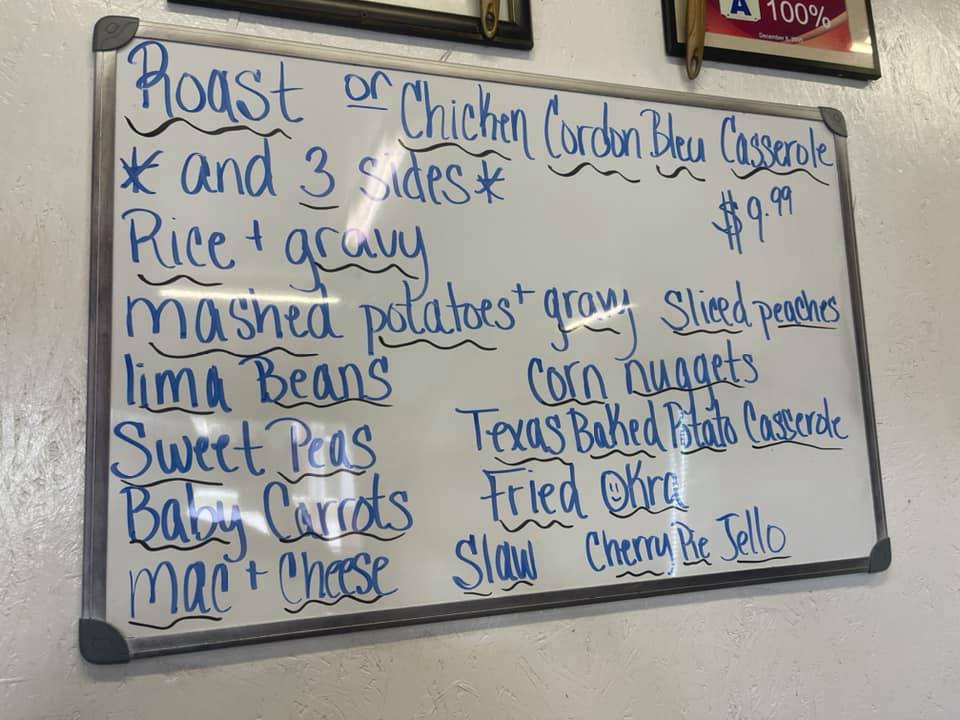 A 100%
Roast or Chicken Cordon Bleu Casserole
* and 3 sides *
$9.99
Rice + gravy
mashed potatoes + gravy Sliced peaches
lima Beans Corn nuggets
Sweet Peas Texas Baked Potato Casserole
Baby Carrots Fried Okra
Mac + Cheese Slaw Cherry Pie Jello